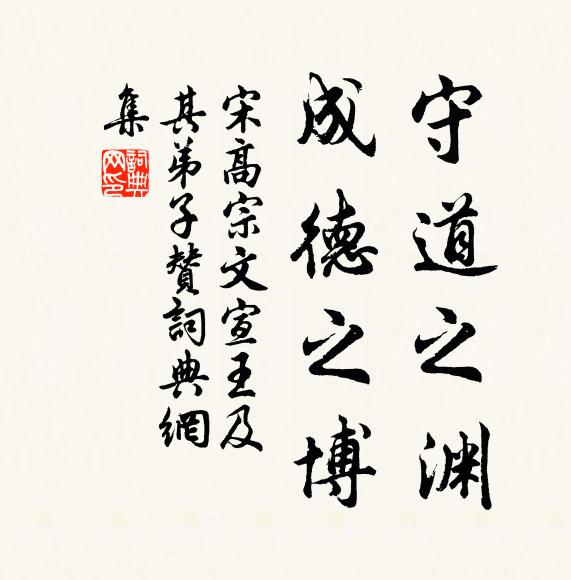 守道之渊
成德之博
宋高宗文宣王及
其弟子贊詞典網
集
詞典
网印